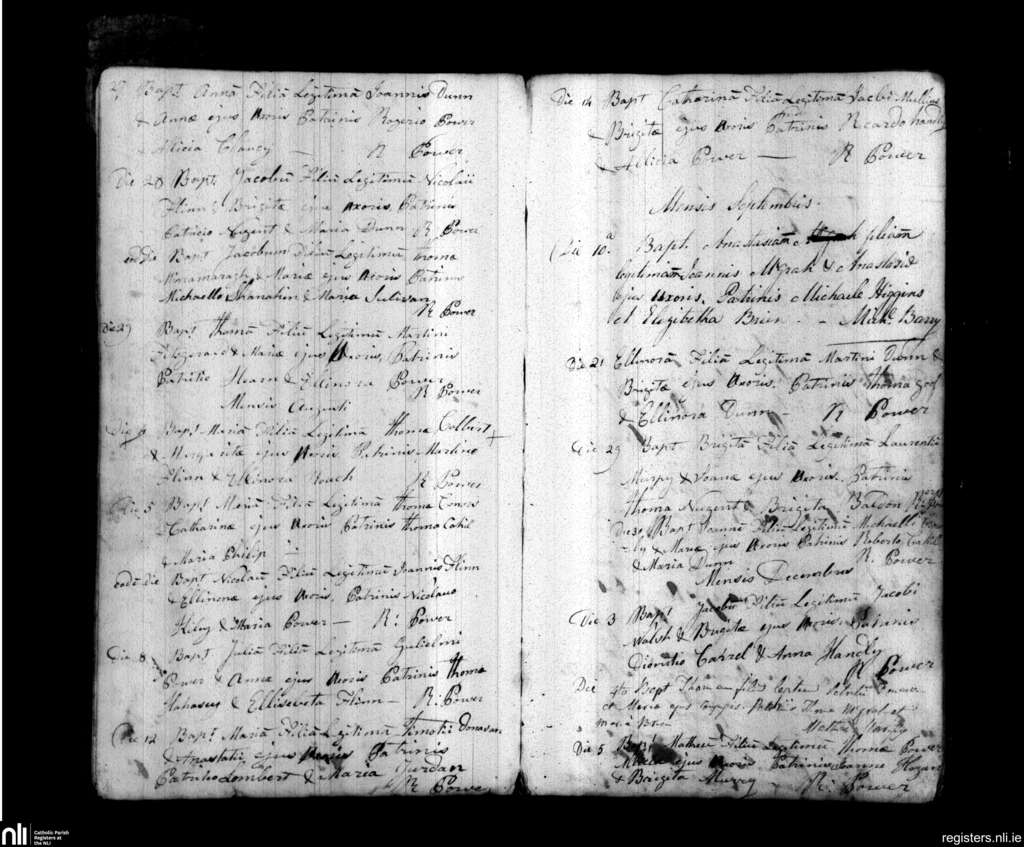 Bapt Annā Filiā Legitimā Joannis Dunn
& Annæ ejus Uxoris Patrinis Rogerio Power
& Alicia Clancy — R Power
Die 28 Bapt Jacobū Filiū Legitimū Nicolaii
Flinn & Brigitæ ejus Uxoris, Patrinis
Patricio Nugent & Maria Dunn R Power
eod die Bapt Jacobum Filiū Legitimū Thomæ
& Mariæ ejus Uxoris Patrinis
Michaello Shanahin & Maria Sulivan
R Power
Die 29 Bapt Thomā Filiū Legitimū Martini
Fitzgerald & Mariæ ejus Uxoris, Patrinis
Patritio Hearn & Ellinora Power
R Power
Mensis Augusti
Bapt Mariā Filiā Legitimā Thomæ Colbert
& Margaritæ ejus Uxoris Patrinis Martino
Flinn & Ellinora Roach R Power
Die 5 Bapt Mariā Filiā Legitimā Thomæ
Catharinæ ejus Uxoris Patrinis Thoma Cahil
& Maria Philip —
eodē die Bapt Nicolaū Filiū Legitimū Joannis Flinn
& Ellinoræ ejus Uxoris, Patrinis Nicolauo
& Maria Power — R: Power
Die 8 Bapt Juliā Filiā Legitimā Gulielmi
Power & Annæ ejus Uxoris Patrinis Thoma
& Ellisebeta Flinn — R: Power
Die 12 Bapt Mariā Filiā Legitimā Timotii Donavan
& Anastatiæ ejus Uxoris Patrinis
Patritio Lombert & Maria Jurdan
R Power
Die 14 Bapt Catharinā Filiā Legitimā Jacobi Mullins
& Brigitæ ejus Uxoris Patrinis Ricardo Handly
& Allicia Power — R Power
Mensis Septembris.
Die 10.ª Bapt. Anastasiam filiam
legitimam Joannis McGrath & Anastasiæ
ejus Uxoris. Patrinis Michaele Higgins
et Elizibetha Brien — Mich. Barry
Die 21 Ellinorā Filiā Legitimā Martini Dunn &
Brigitæ ejus Uxoris. Patrinis Thoma
& Ellinora Dunn — R Power
Die 29 Bapt Brigitā Filiā Legitimā Laurentii
Murpy & Joanæ ejus Uxoris. Patrinis
Thoma Nugent & Brigita
Die 30 Bapt Joannē Filiū Legitimū Michaello
& Mariæ ejus Uxoris Patrinis Roberto Cahill
& Maria Dunn R. Power
Mensis Decembris
Die 3 Bapt Jacobū Filiū Legitimū Jacobi
Walsh & Brigitæ ejus Uxoris Patrinis
Dionitio Carrel & Anna Handly
R Power
Die 4to Bapt Thomam
et Maria ejus
Maria
Die 5 Bapt Matheū Filiū Legitimū Thomæ Power
ejus Uxoris Patrinis Joanne Hogan
& Brigita Murry — R: Power
nli
Catholic Parish
Registers at
the NLI
registers.nli.ie